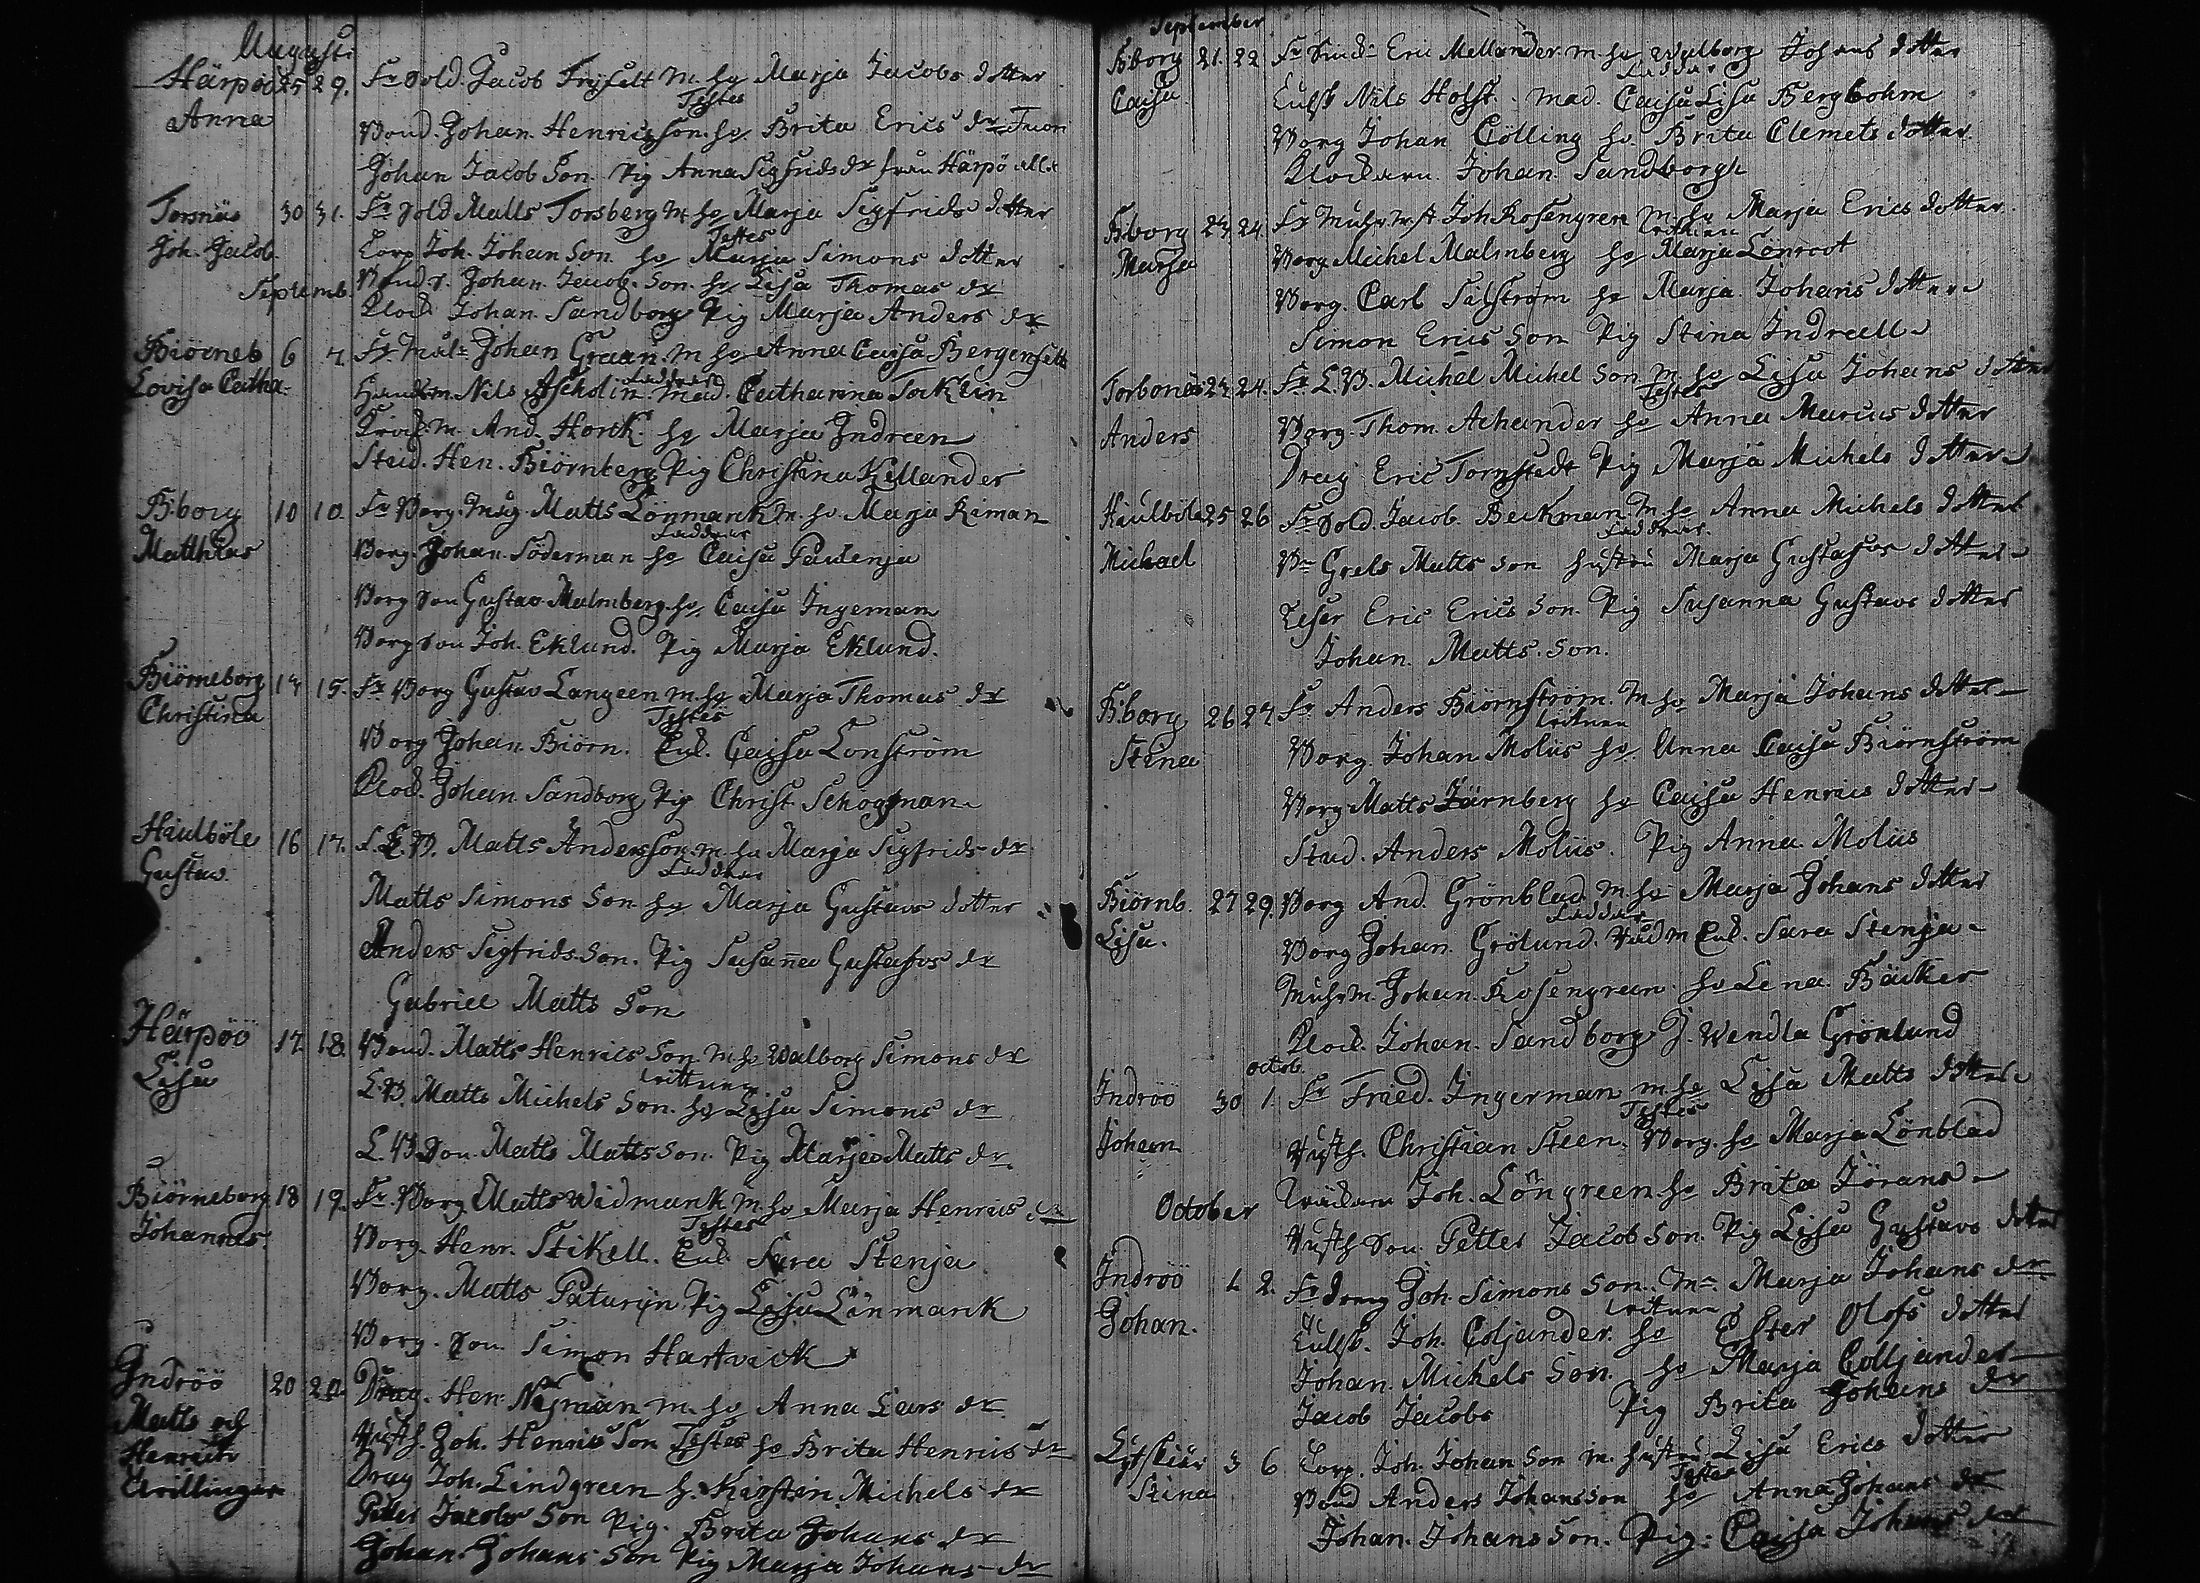 August
Härpöö 25 29. Fr Sold. Jacob Frifelt m. ho Marja Jacobs dotter
Testes
Anna Bond. Johan Henricsson. ho Brita Erics dr
Johan Jacob Son. Pig Anna Sigfrids dr från Härpö
Torsnäs 30 31. Fr Sold Matts Torsberg m ho Marja Sigfrids dotter
Testes
Joh. Jacob Corp. Joh. Johan Son ho Marja Simons dotter
Septemb. Johan Jacob. Son. ho Lisa Thomas dr
Klock Johan Sandborg Pig Marja Anders dr
Biörneb 6 7. Fr Johan Graan. m ho Anna Caisa Bergenfelt
Faddrar
Lovisa Catha. Nils Ascholin. Mad. Catharina Tocklin
And. Horck ho Marja Indreen
Stud. Hen. Biörnberg Pig Christina Kellander
B:borg 10 10. Fr Borg. Matts Lönmarck m. ho Marja Riman
Faddrar
Matthias Borg. Johan Söderman ho Caisa
Borg Son Gustav Malmberg. ho Caisa Ingeman
Borg Son Joh. Eklund. Pig Marja Eklund.
Biörneborg 14 15. Fr Borg Gustav Langeen m. ho Marja Thomas dr
Testes
Christina Borg Johan Biörn. Enk. Caisa Lonström
Klock. Johan Sandborg Pig Christ. Schogman
Hiulböle 16 17. L.B. Matts Andersson m. ho Marja Sigfrids dr
Faddrar
Gustav. Matts Simons Son ho Marja Gustavs dotter
Anders Sigfrids Son. Pig Susanna Gustafvs dr
Gabriel Matts Son
Härpöö 17. 18. Bond. Matts Henrics Son m. ho Walborg Simons dr
Vittnen
Lisa L.B. Matts Michels Son. ho Lisa Simons dr
L. B. Son Matts Matts Son. Pig Marja Matts dr.
Biörneborg 18 19. Fr Borg Matts Widmark m. ho Marja Henrics dr
Testes
Johannes. Borg. Henr. Stikell. Enk. Sara Stenja
Borg. Matts Paturijn Pig Lisa Lönmarck
Borg. Son Simon Hartvick
Indröö 20 20. Drag. Hen. Nijman m. ho Anna Lars dr.
Matts och Joh. Henrics Son Testes ho Brita Henrics dr
Henrich Drag Joh. Lindgreen h. Kirstin Michels dr
Tvillingar Petter Jacobs Son Pig. Brita Johans dr
Johan Johans Son Pig Marja Johans dr
September
B:borg 21. 22 Fr Eric Mellander m. ho Walborg Johans dotter
Faddrar
Caisa. Nils Holst. Mad. Caisa Lisa Bergbohm
Borg Johan Cölling ho. Brita Clemets dotter
Klockaren Johan Sandborgh
B:borg 23. 24. Fr Joh Rosengren m. ho Marja Erics dotter
Vittnen
Marja Borg. Michel Malmberg ho Marja Lönroot
Borg. Carl Salström ho Marja Johans dotter
Simon Erics Son Pig Stina Indreell
Torbonäs 23 24. Fr L.B. Michel Michel Son m. ho Lisa Johans dotter
Testes
Anders Borg. Thom. Achander ho Anna Marcus dotter
Drag Eric Tornstedt Pig Marja Michels dotter
Hiulböle 25 26 Fr Sold. Jacob Beckman m ho Anna Michels dotter
Faddrar
Michael Grels Matts Son hustru Marja Gustafvs dotter
Eric Erics Son. Pig Susanna Gustavs dotter
Johan Matts Son.
B:borg 26 27. Fr Anders Biörnström m ho Marja Johans dotter
Vittnen
Stina Borg. Johan Moliis ho Anna Caisa Biörnström
Borg Matts Järnberg ho Caisa Henrics dotter
Stud. Anders Moliis. Pig Anna Moliis
Biörnb. 27 29. Borg And. Grönblad m ho Marja Johans dotter
Faddrar
Lisa. Borg Johan Grölund. Enk. Sara Stenja
Murm. Johan Rosengreen ho Lena Bäcker
Klock. Johan Sandborg J. Wendla Grönlund
octob.
Indröö 30 1 Fr Fried. Ingerman m. ho Lisa Matts dotter
Testes
Johan Christian Steen. Borg. ho Marja Lönblad
Joh. Löngreen ho Brita Jörans
October Son Petter Jacob Son. Pig Lisa Gustavs dotter
Indröö 1. 2. Fr Drag Joh. Simons Son. m Marja Johans dr
Vittnen
Johan. Joh. Coljander. ho Ester Olofs dotter
Johan Michels Son ho Marja Colljander
Jacob Jacobs Pig Brita Johans dr
Lytskiär 3 6 Corp. Joh. Johan Son m. hustru Lisa Erics dotter
Testes
Stina Bond Anders Johansson ho Anna Johans dr
Johan Johans Son. Pig. Caisa Johans dr